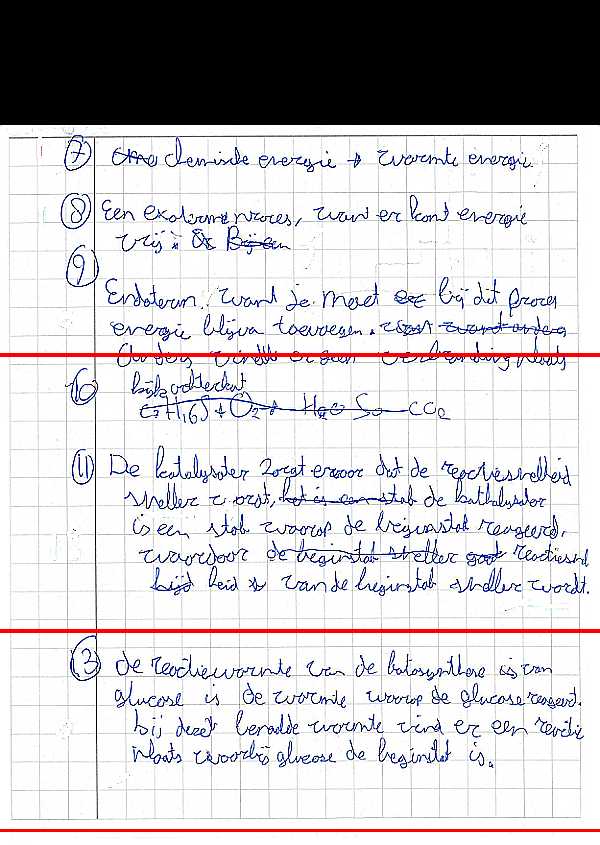 7 chemische energie → warmte energie
8 Een exotherm proces, want er komt energie
vrij.
9
Endoterm, want je moet bij dit proces
energie blijven toevoegen.
Anders vindt er geen verbranding plaats
10 kijk achterkant
C7H16S + O2 → H2O SO CO2
11 De katalysator zorgt ervoor dat de reactiesnelheid
sneller wordt, het is een stof de kathalysator
is een stof waarop de beginstof reageerd,
waardoor de beginstof sneller gaat reactiesnel
heid van de beginstof sneller wordt.
13 de reactiewarmte van de fotosynthese is van
glucose is de warmte waarop de glucose reageerd.
bij deze bepaalde warmte vind er een reactie
plaats waarbij glucose de beginstof is.